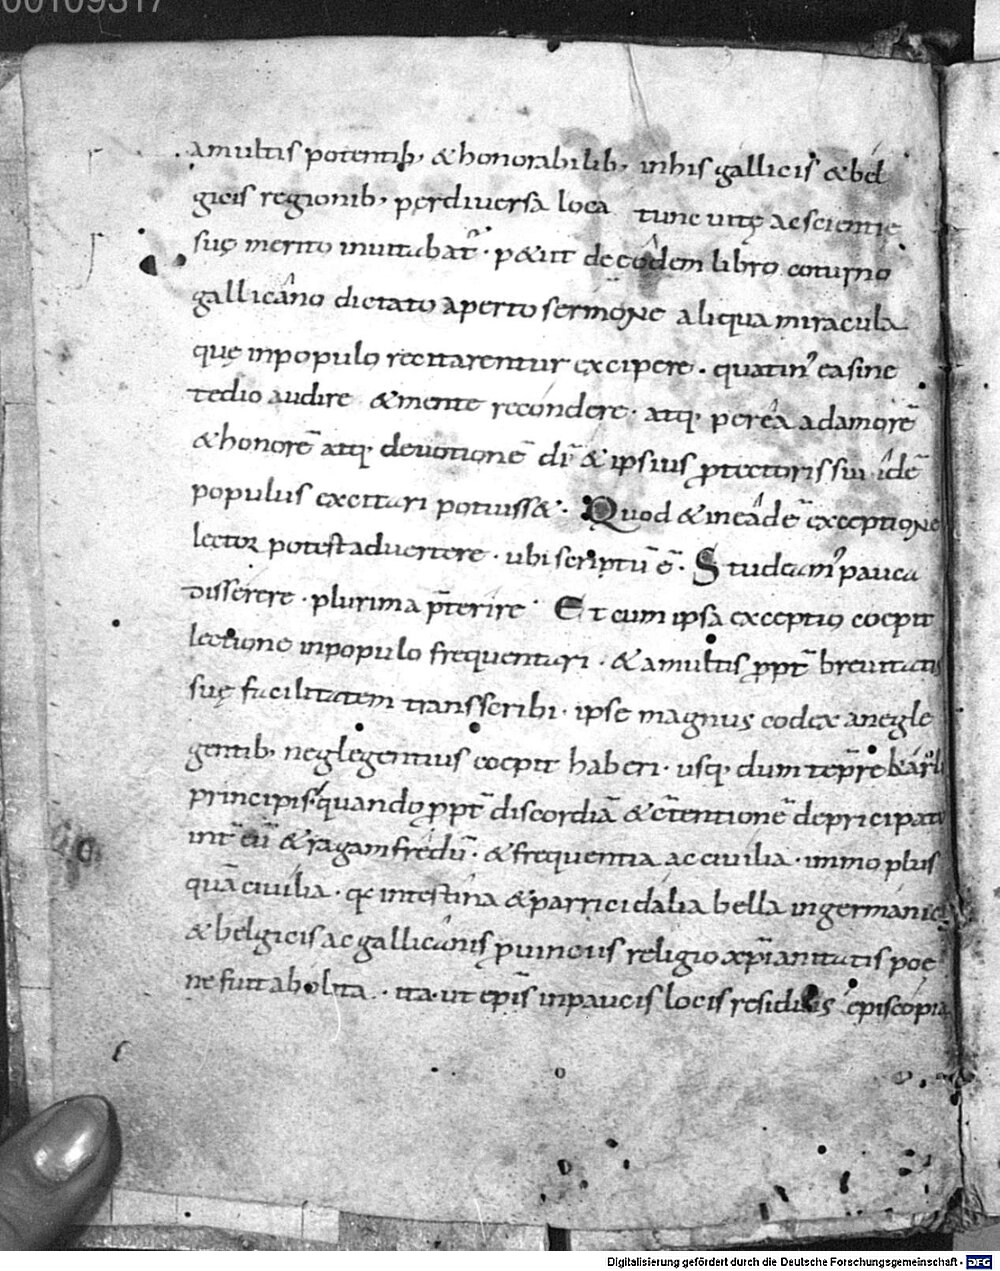 00109317
amultis potentib; & honorabilib; inhis gallicis & bel
gicis regionib; perdiversa loca tunc uitę ac scientię
suę merito inuitabat̄. p&iit de eodem libro coturno
gallicano dictato aperto sermone aliqua miracula
quę inpopulo recitarentur excipere. quatin' ea sine
tedio audire & mente recondere. atq; per ea adamorē
& honorē atq; deuotionē dī & ipsius ꝓtectoris sui idē
populus excitari potuiss&. Quod & in eadē exceptione
lector potest aduertere. ubi scriptū ē. Studeam' pauca
disserere. plurima p̄terire. Et cum ipsa exceptio coepit
lectione inpopulo frequentari. & amultis ꝓpt̄ breuitatis
suę facilitatem transscribi. ipse magnus codex anegle
gentib; neglegentius coepit haberi. usq; dum tēpr̄e karoli
principis. quando ꝓpt̄ discordiā & c̄tentionē de pricipatu
int̄ eū & ragamfredū. & frequentia ac ciuilia. immo plus
quā ciuilia. q; intestina & parricidalia bella ingermanicis
& belgicis ac gallicanis ꝓuinciis religio xp̄ianitatis poe
ne fuit abolita. ita. ut ep̄is inpaucis locis residuis episcopia
Digitalisierung gefördert durch die Deutsche Forschungsgemeinschaft - DFG